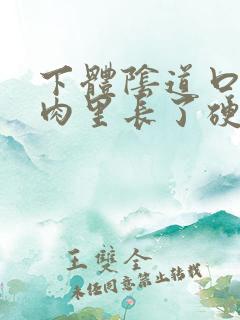 下體陰道口
肉里长了硬
王雙全
未经同意禁止转载